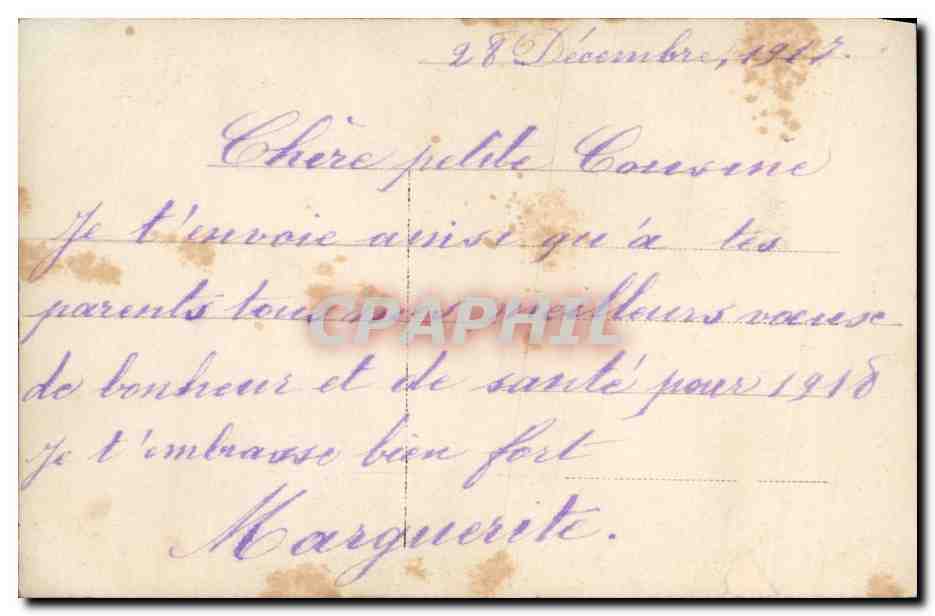 28 Décembre, 1917.
Chère petite Cousine
Je t'envoie ainsi qu'à tes
parents tous mes meilleurs vœux
CPAPHIL
de bonheur et de santé pour 1918
Je t'embrasse bien fort
Marguerite.